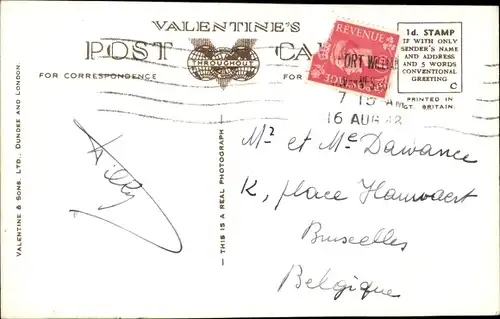 VALENTINE'S
POST CA
FOR CORRESPONDENCE
THROUGHOUT
FOR
REVENUE
1d. STAMP
IF WITH ONLY
SENDER'S NAME
AND ADDRESS
AND 5 WORDS
CONVENTIONAL
GREETING
C
PRINTED IN
GT. BRITAIN.
7 15 AM
16 AUG
VALENTINE & SONS. LTD., DUNDEE AND LONDON.
— THIS IS A REAL PHOTOGRAPH —
Mr et Me Dawance
place
Bruxelles
Belgique